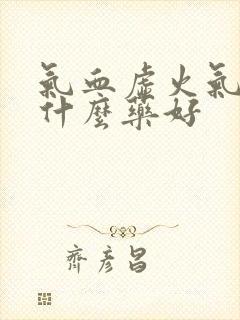 氣血虛火氣
什麼藥好
齊彥昌